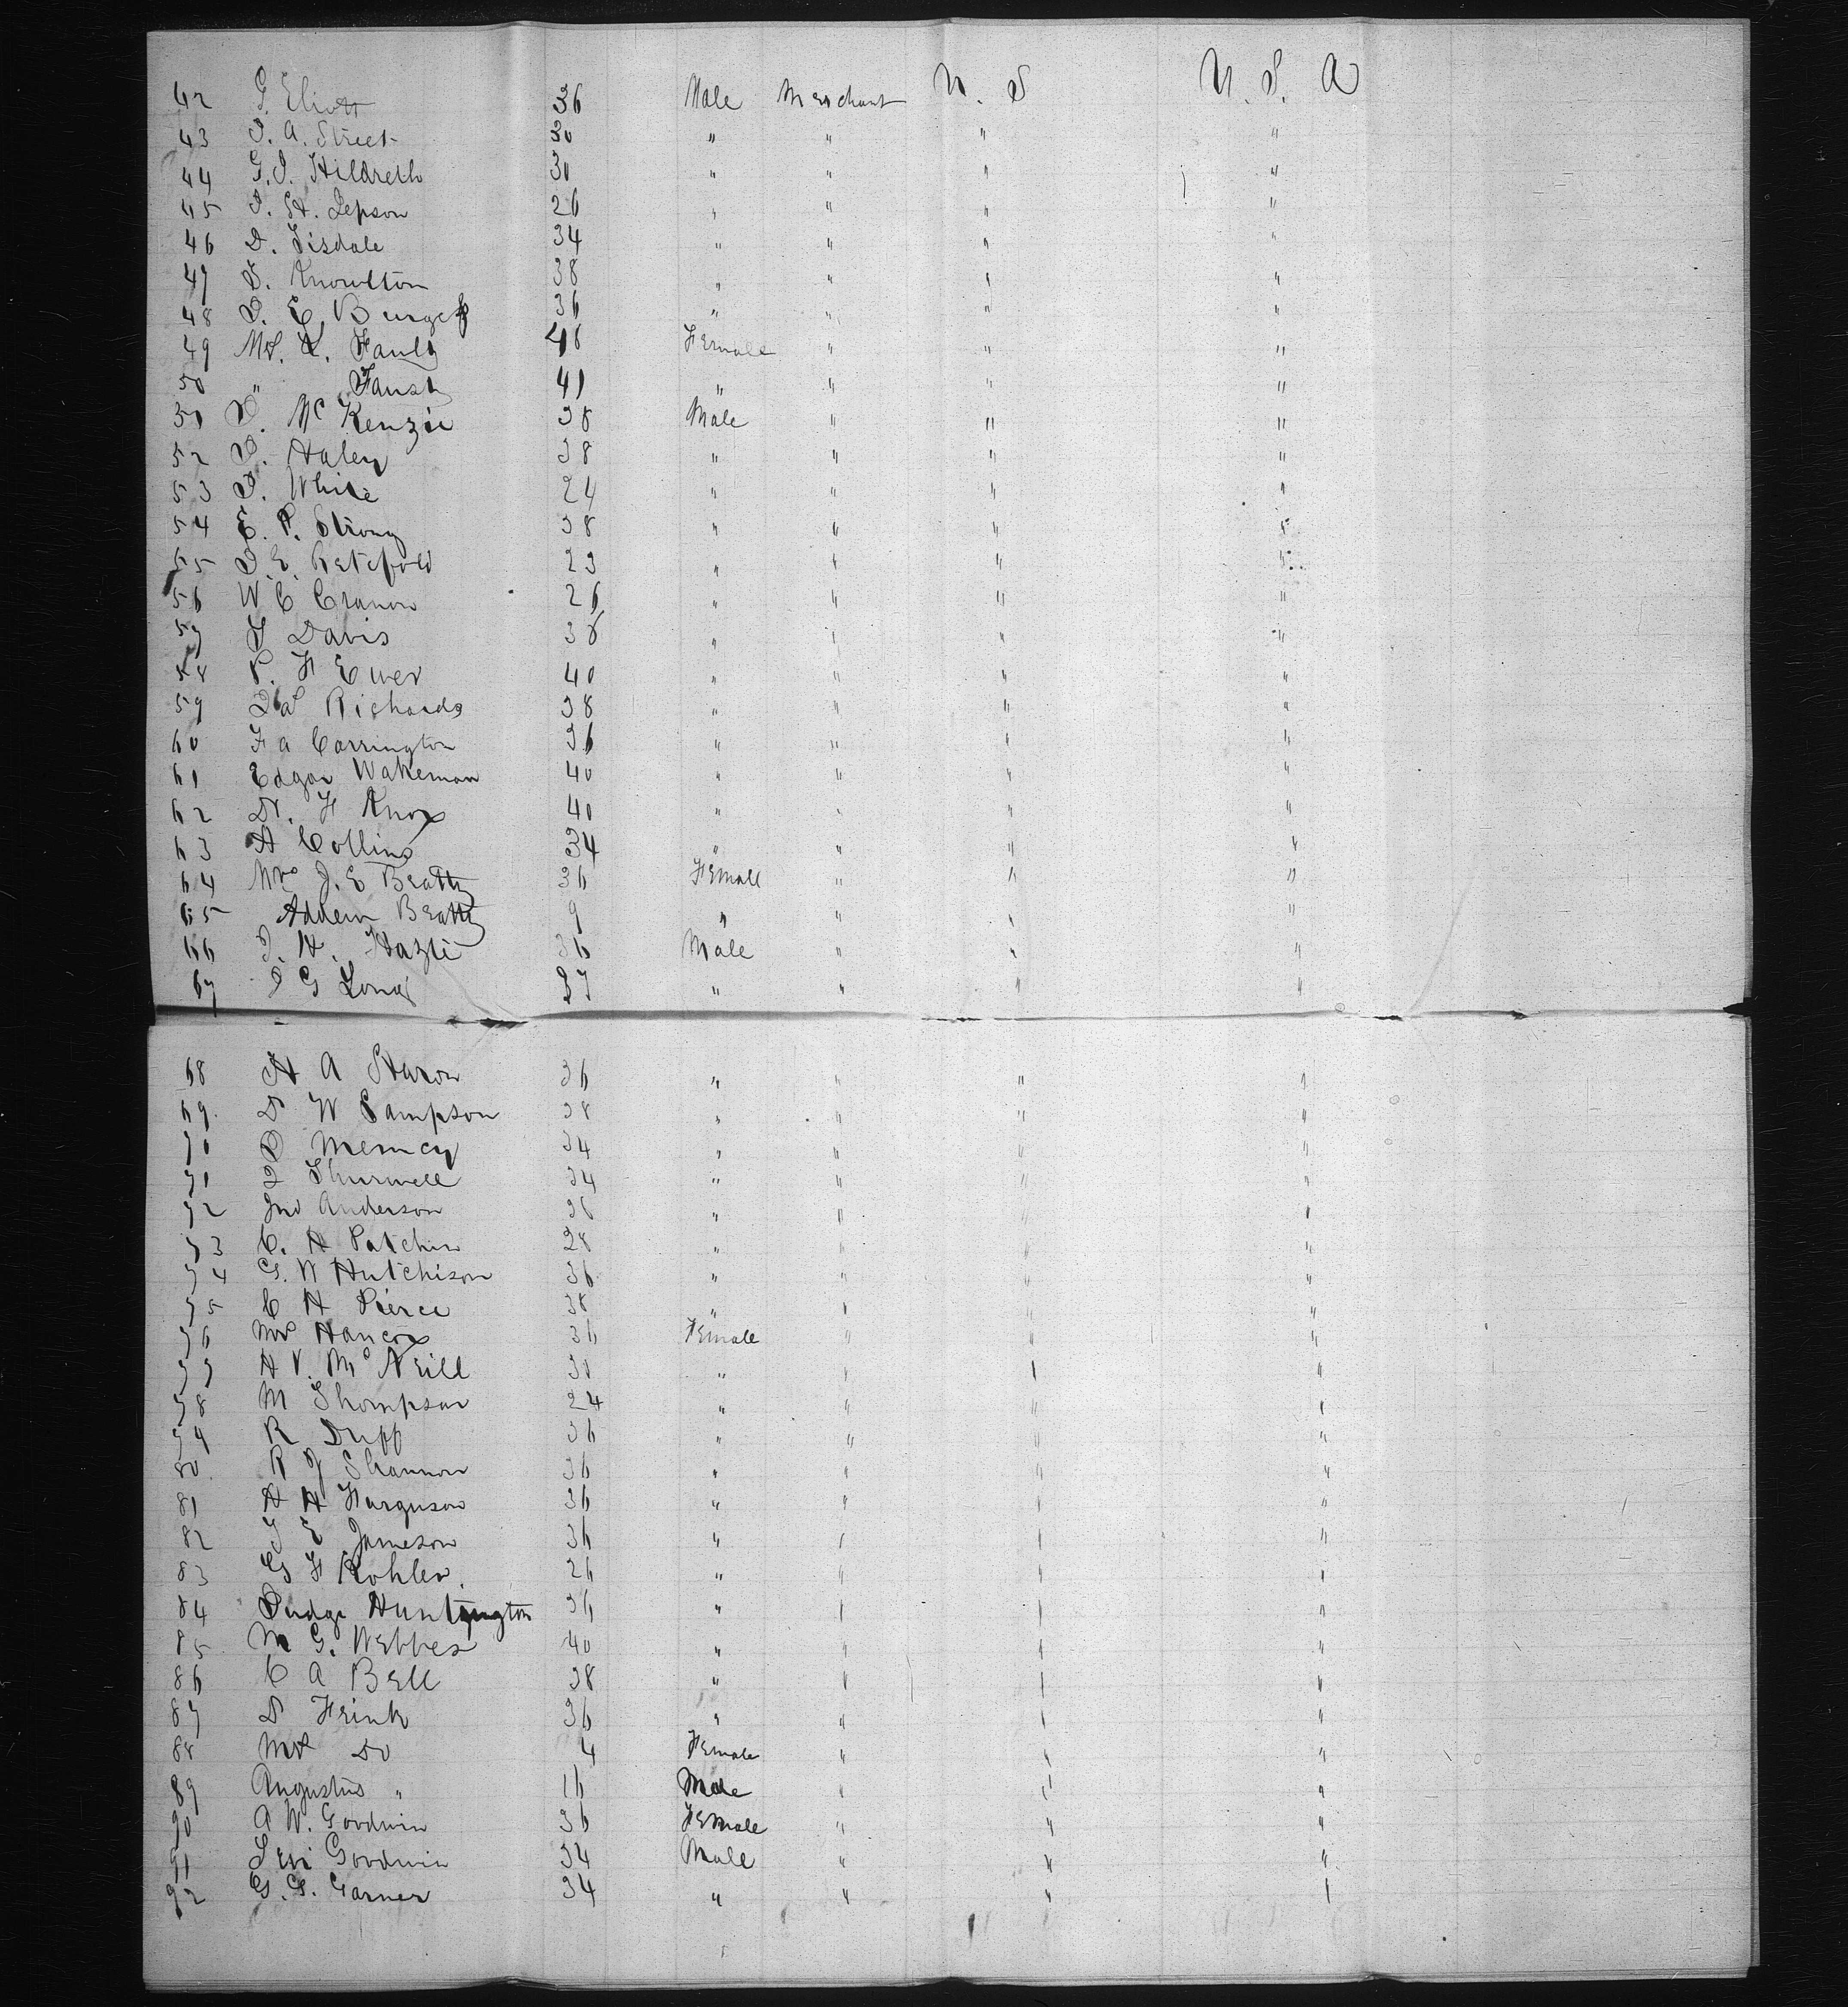 42 G. Eliott 36 Male Merchant U. S U. S. A
43 I. A. Street 30 " " " "
44 G. S. Hildreth 30 " " " "
45 I. H. Jepson 26 " " " "
46 D. Tisdale 34 " " " "
47 S. Knowlton 38 " " " "
48 D. E. Burgess 36 " " " "
49 Mrs. L. 46 Female " " "
50 " 41 " " " "
51 D. McKenzie 38 Male " " "
52 D. Haley 38 " " " "
53 D. White 24 " " " "
54 E. P. Strong 38 " " " "
55 D. E. 23 " " " "
56 W C 26 " " " "
57 Davis 38 " " " "
58 P. F Ewer 40 " " " "
59 Jas Richards 38 " " " "
60 F A Carrington 36 " " " "
61 Edgar Wakeman 40 " " " "
62 Dr. F Knox 40 " " " "
63 A Collins 34 " " " "
64 Mrs J. E Beatty 36 Female " " "
65 Beatty 9 " " " "
66 J. H. 36 Male " " "
67 G Long 37 " " " "
68 H A 36 " " " "
69. D W Sampson 38 " " " "
70 D 34 " " " "
71 34 " " " "
72 Jno Anderson 36 " " " "
73 C. H Patchin 28 " " " "
74 G. W Hutchison 36 " " " "
75 C H Pierce 38 " " " "
76 Mrs Hancox 36 Female " " "
77 H V. McNeill 30 " " " "
78 M Thompson 24 " " " "
79 R 36 " " " "
80. R Shannon 36 " " " "
81 H H Furguson 36 " " " "
82 E Jameson 36 " " " "
83 G F Kohler 26 " " " "
84 Judge Huntington 36 " " " "
85 M G. Webber 40 " " " "
86 C A Bell 38 " " " "
87 D Frink 36 " " " "
88 Mrs Do 4 Female " " "
89 Augustus " 16 Male " " "
90 A W. Goodwin 36 Female " " "
91 Levi Goodwin 34 Male " " "
92 G. G. Garner 34 " " " "